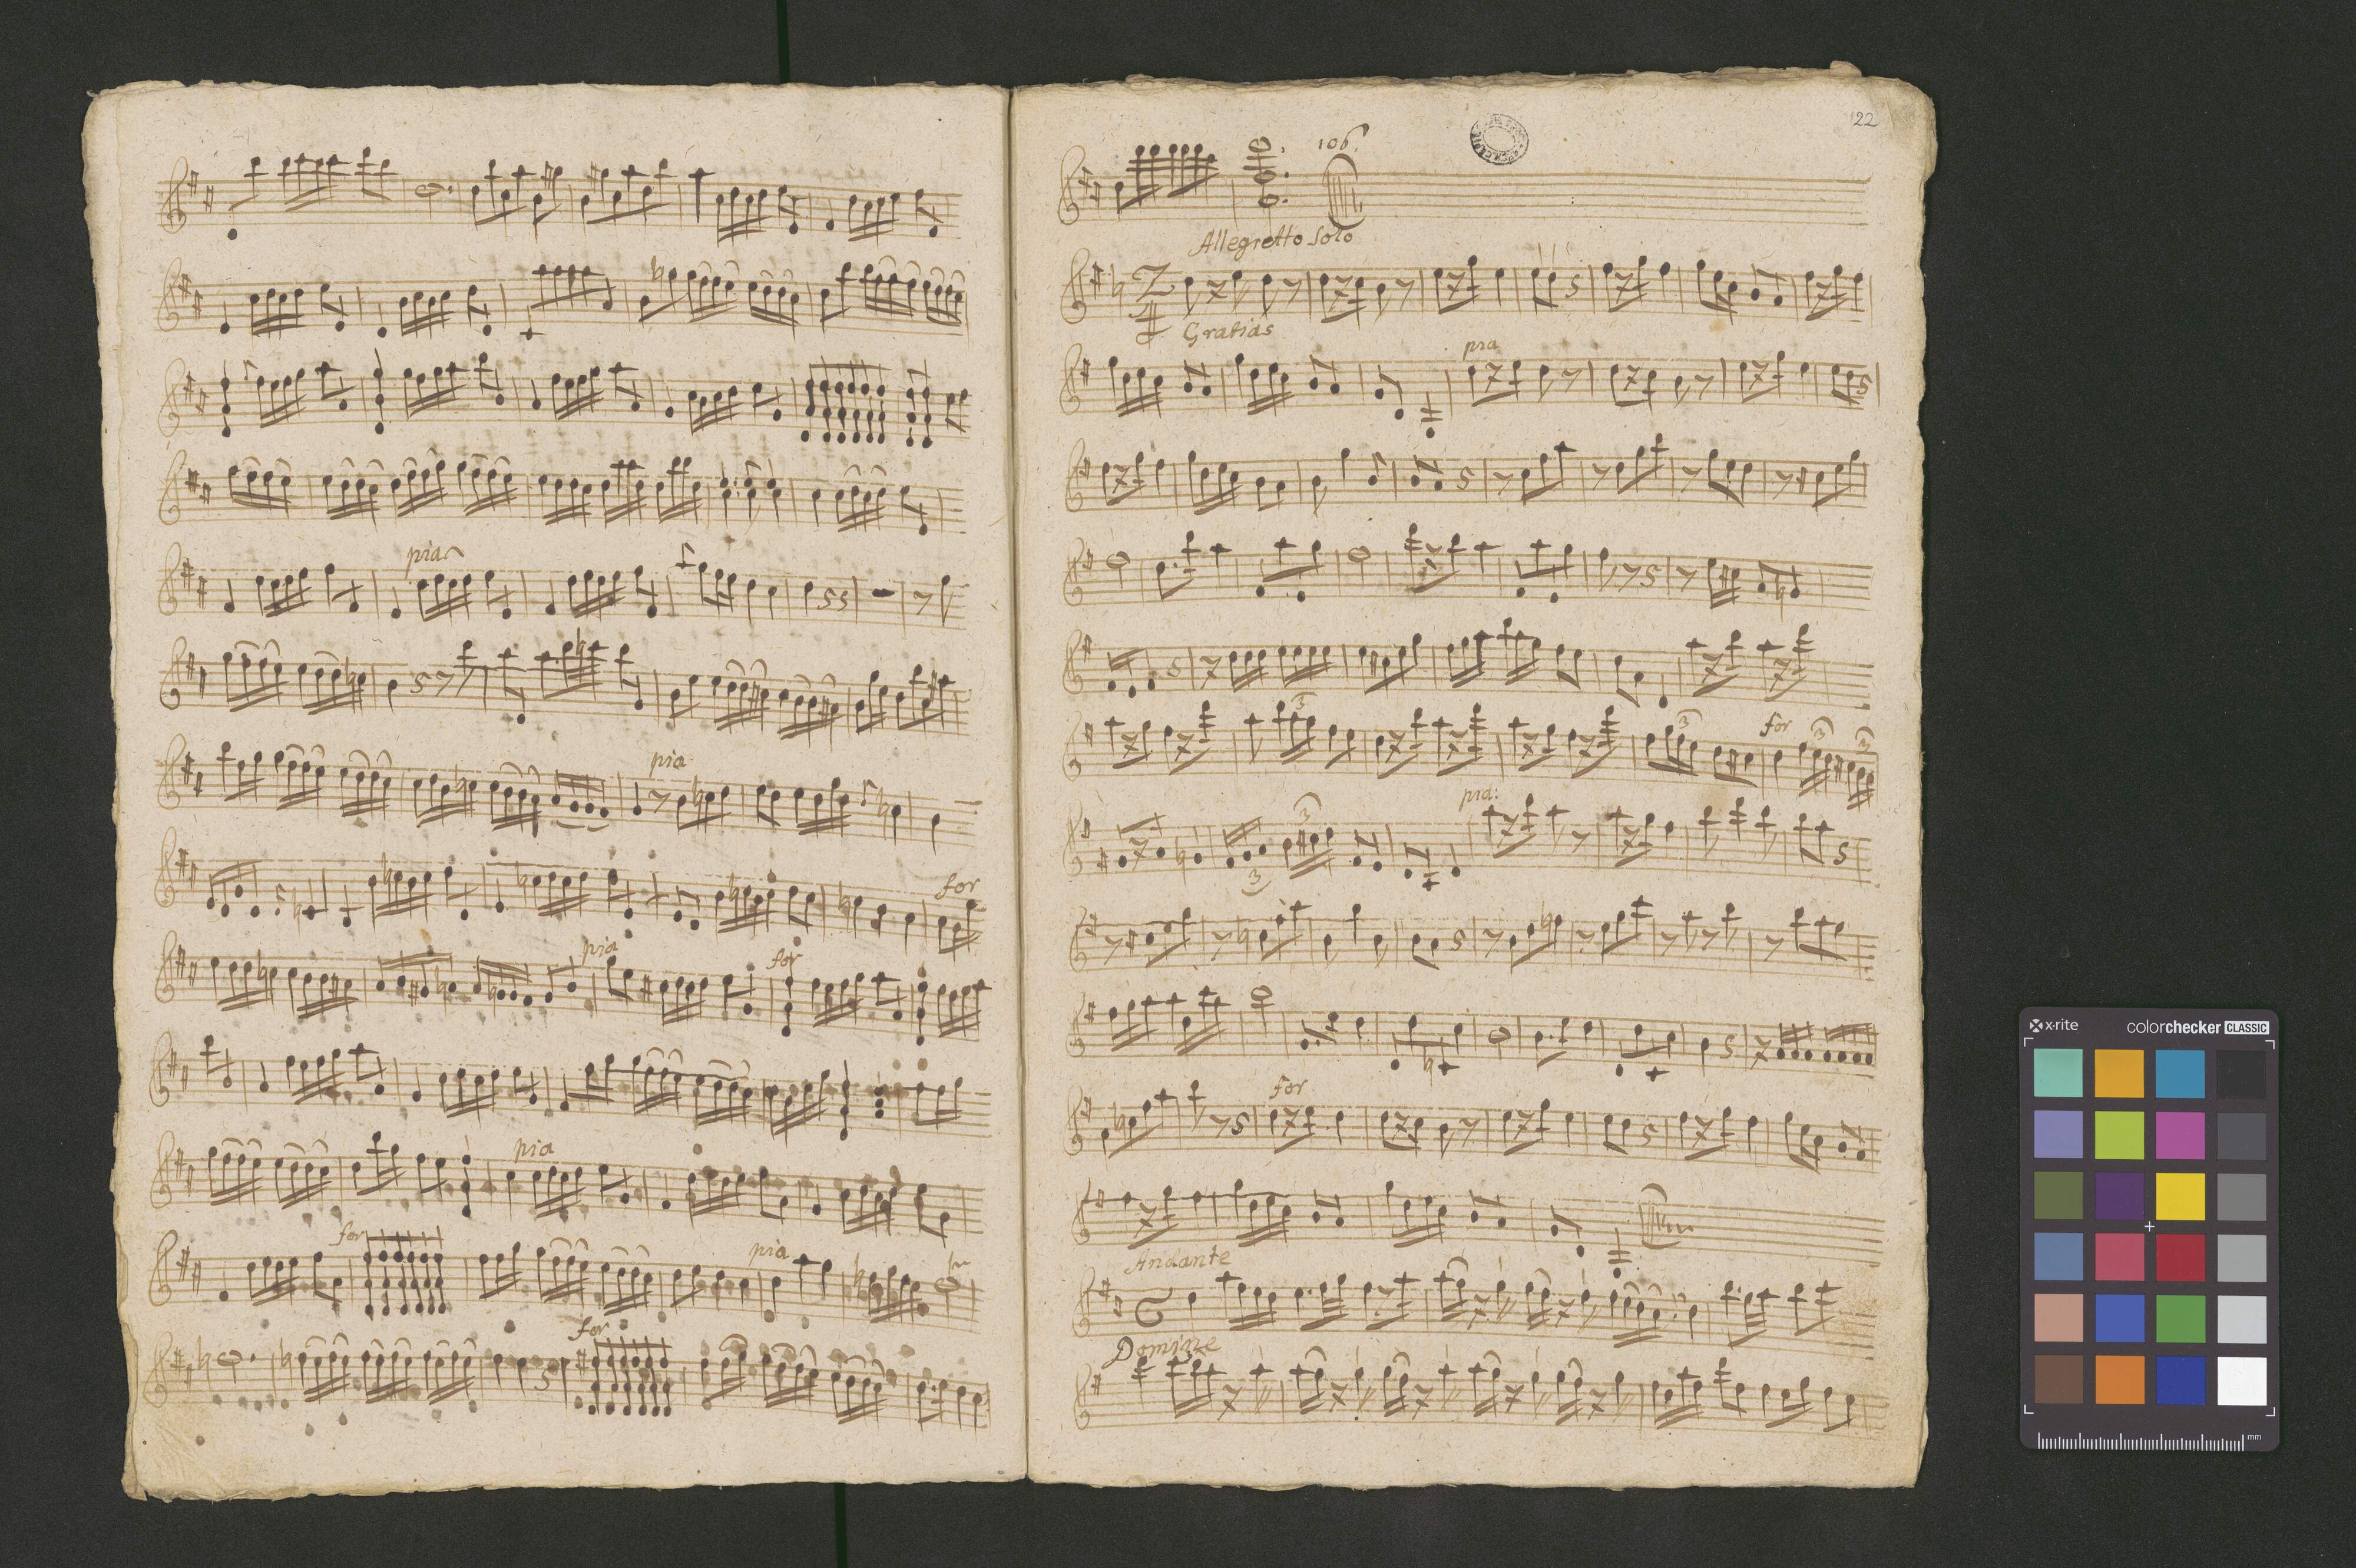 pia
pia
for
pia
for
pia
for
pia
for
22
106.
Allegretto Solo
Gratias
pia
3
3
for
3
3
pia:
3
3
for
Andante
Domine
x-rite
colorchecker CLASSIC
mm